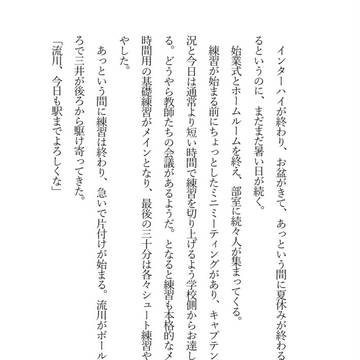 インターハイが終わり、お盆がきて、あっという間に夏休みが終わる
るというのに、まだまだ暑い日が続く。
始業式とホームルームを終え、部室に続々人が集まってくる。
練習が始まる前にちょっとしたミニミーティングがあり、キャプテン
況と今日は通常より短い時間で練習を切り上げるよう学校側からお達し
る。どうやら教師たちの会議があるようだ。となると練習も本格的なメ
時間用の基礎練習がメインとなり、最後の三十分は各々シュート練習や
やした。
あっという間に練習は終わり、急いで片付けが始まる。流川がボール
ろで三井が後ろから駆け寄ってきた。
「流川、今日も駅までよろしくな」